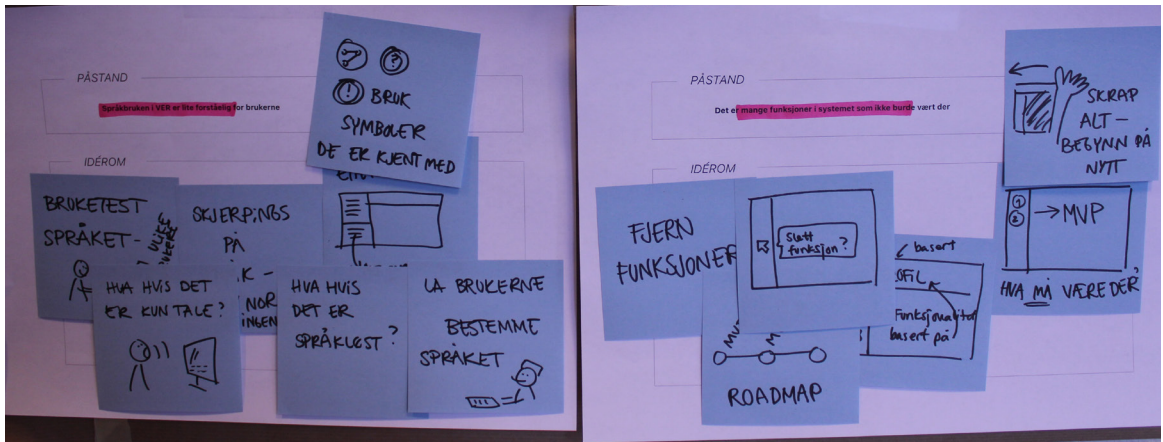 PÅSTAND
Språkbruken i VER er lite forståelig for brukerne
BRUK
SYMBOLER
DE ER KJENT MED
IDÉROM
BRUKETEST
SPRÅKET -
ULIKE
SKJERPINGS
PÅ
HVA HVIS DET
ER KUN TALE?
HVA HVIS
DET ER
SPRÅKLØST?
LA BRUKERNE
BESTEMME
SPRÅKET
PÅSTAND
Det er mange funksjoner i systemet som ikke burde vært der
SKRAP
ALT -
BEGYNN PÅ
NYTT
IDÉROM
FJERN
FUNKSJONER
Slett
funksjon?
basert
Funksjonalitet
basert på
ROADMAP
1
2
→ MVP
HVA MÅ VÆRE DER?